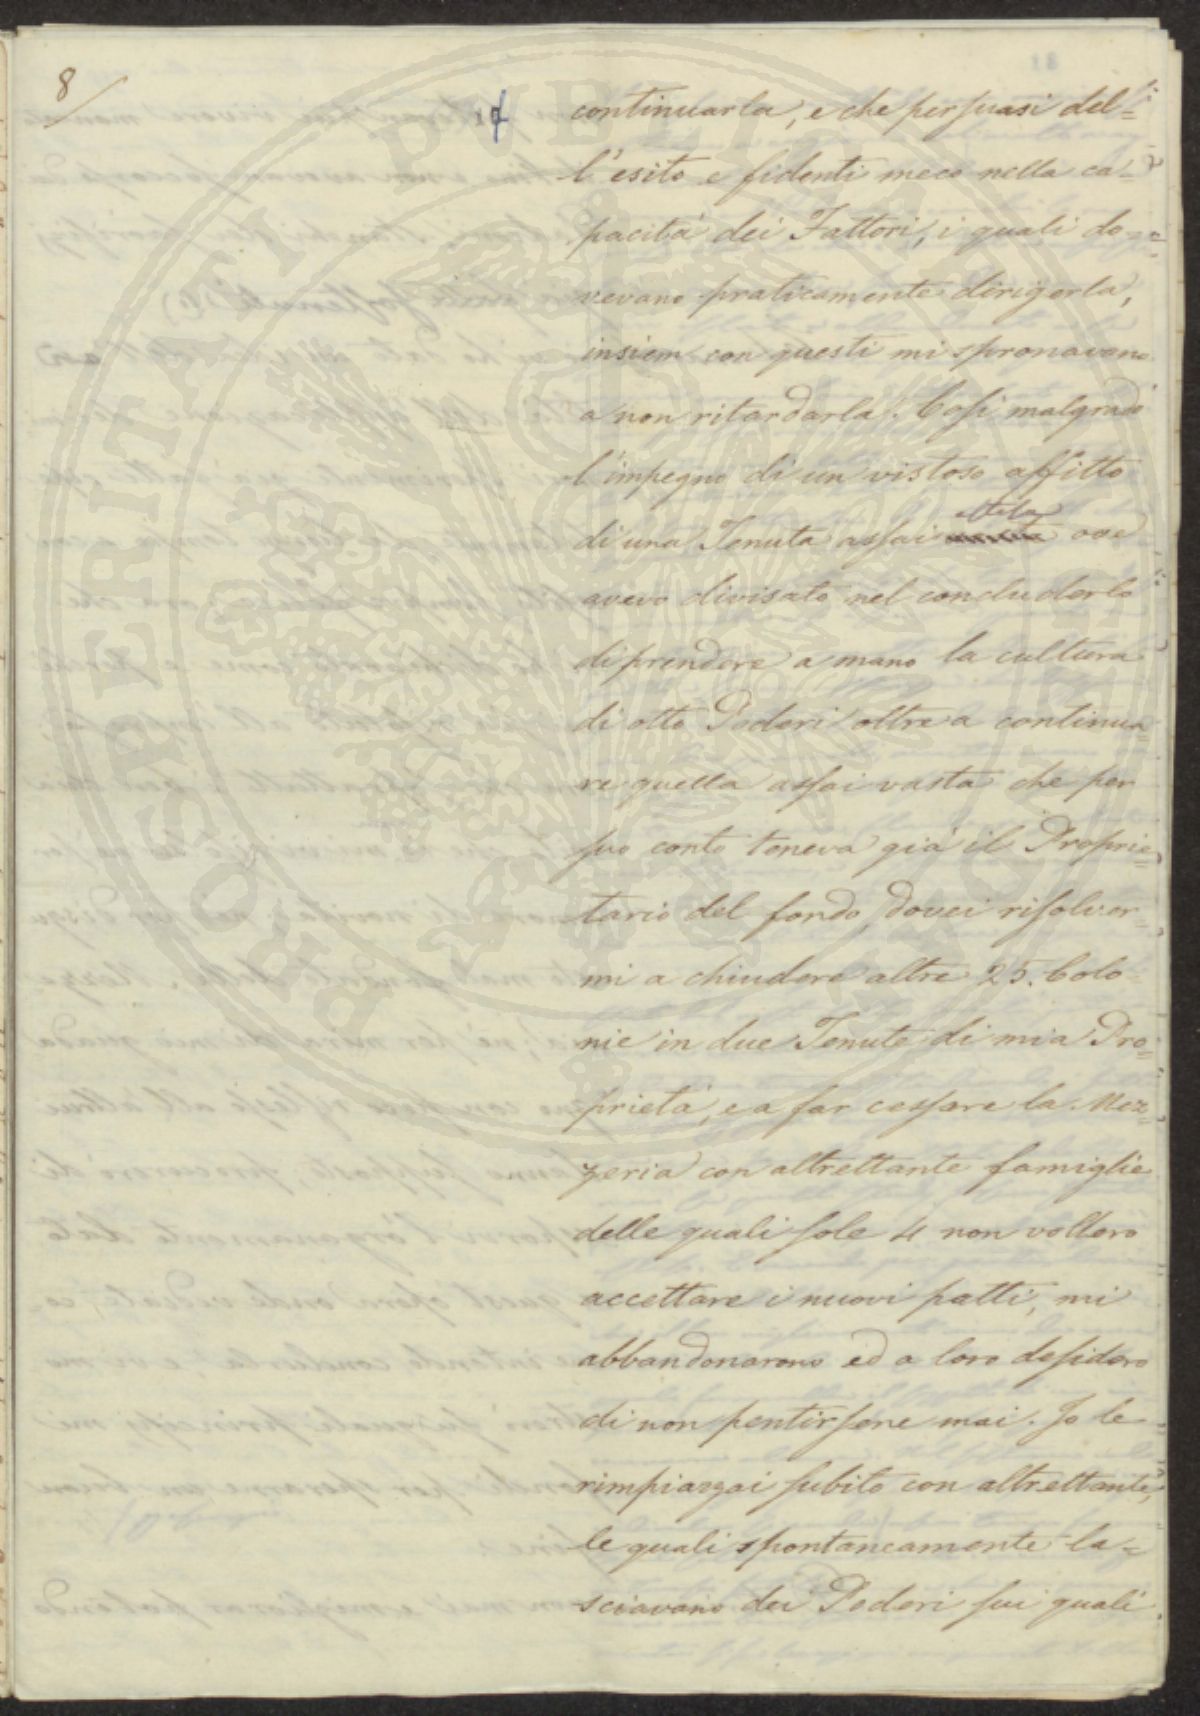 8
continuarla, e che persuasi del=
l'esito e fidenti meco nella ca=
pacità dei Fattori, i quali do=
vevano praticamente dirigerla,
insiem con questi mi spronavano
a non ritardarla. Così malgrado
l'impegno di un vistoso affitto
di una Tenuta assai ove
avevo divisato nel concluderlo
di prendere a mano la cultura
di otto Poderi oltre a continua
re quella assai vasta che per
suo conto teneva già il Proprie=
tario del fondo, dovei risolver=
mi a chiudere altre 25. Colo=
nie in due Tenute di mia Pro=
prietà, e a far cessare la Mez=
zeria con altrettante famiglie
delle quali sole 4 non vollero
accettare i nuovi patti, mi
abbandonarono ed a loro desidero
di non pentirsene mai. Io le
rimpiazzai subito con altrettante,
le quali spontaneamente la=
sciavano dei Poderi sui quali
PROSPERITATI PUBLICAE